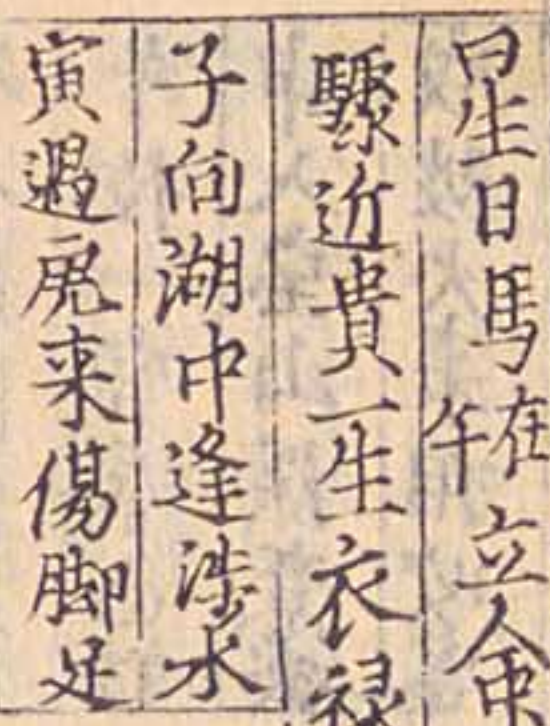 星日馬在午立命
驟近貴一生衣禄
子向湖中逢涉水
寅遇虎来傷脚足